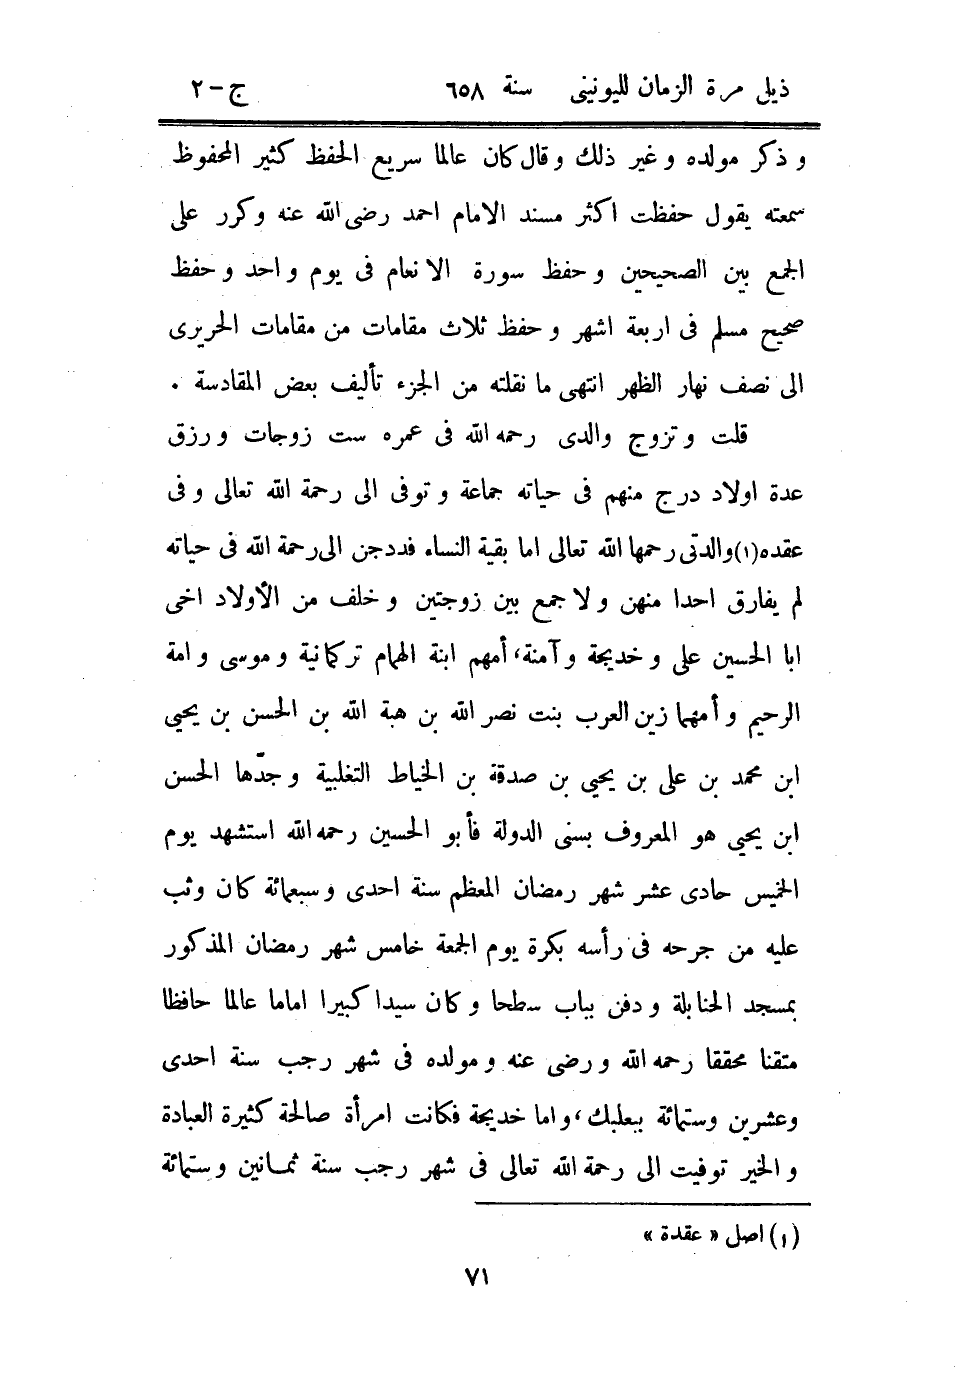 ذيل مرة الزمان لليونينى سنة ٦٥٨ ج-٢
و ذكر مولده و غير ذلك و قال كان عالما سريع الحفظ كثير المحفوظ
سمعته يقول حفظت اكثر مسند الامام احمد رضى الله عنه و كرر على
الجمع بين الصحيحين و حفظ سورة الانعام فى يوم واحد و حفظ
صحيح مسلم فى اربعة اشهر و حفظ ثلاث مقامات من مقامات الحريرى
الى نصف نهار الظهر انتهى ما نقلته من الجزء تأليف بعض المقادسة .
قلت و تزوج والدى رحمه الله فى عمره ست زوجات و رزق
عدة اولاد درج منهم فى حياته جماعة و توفى الى رحمة الله تعالى و فى
عقده(١)والدتى رحمها الله تعالى اما بقية النساء فددجن الى رحمة الله فى حياته
لم يفارق احدا منهن و لا جمع بين زوجتين و خلف من الأولاد اخى
ابا الحسين على و خديجة و آمنة، أمهم ابنة الهمام تركمانية و موسى و امة
الرحيم و أمهما زين العرب بنت نصر الله بن هبة الله بن الحسن بن يحيى
ابن محمد بن على بن يحيى بن صدقة بن الخياط التغلبية و جدّها الحسن
ابن يحيى هو المعروف بسنى الدولة فأبو الحسين رحمه الله استشهد يوم
الخميس حادى عشر شهر رمضان المعظم سنة احدى و سبعمائة كان وثب
عليه من جرحه فى رأسه بكرة يوم الجمعة خامس شهر رمضان المذكور
بمسجد الحنابلة و دفن بباب سطحا و كان سيدا كبيرا اماما عالما حافظا
متقنا محققا رحمه الله و رضى عنه و مولده فى شهر رجب سنة احدى
وعشرين وستمائة ببعلبك، و اما خديجة فكانت امرأة صالحة كثيرة العبادة
و الخير توفيت الى رحمة الله تعالى فى شهر رجب سنة ثمانين و ستمائة
(١) اصل « عقدة »
٧١